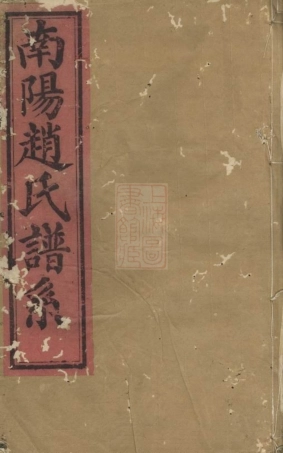 南陽趙氏譜系
上海圖
書館藏